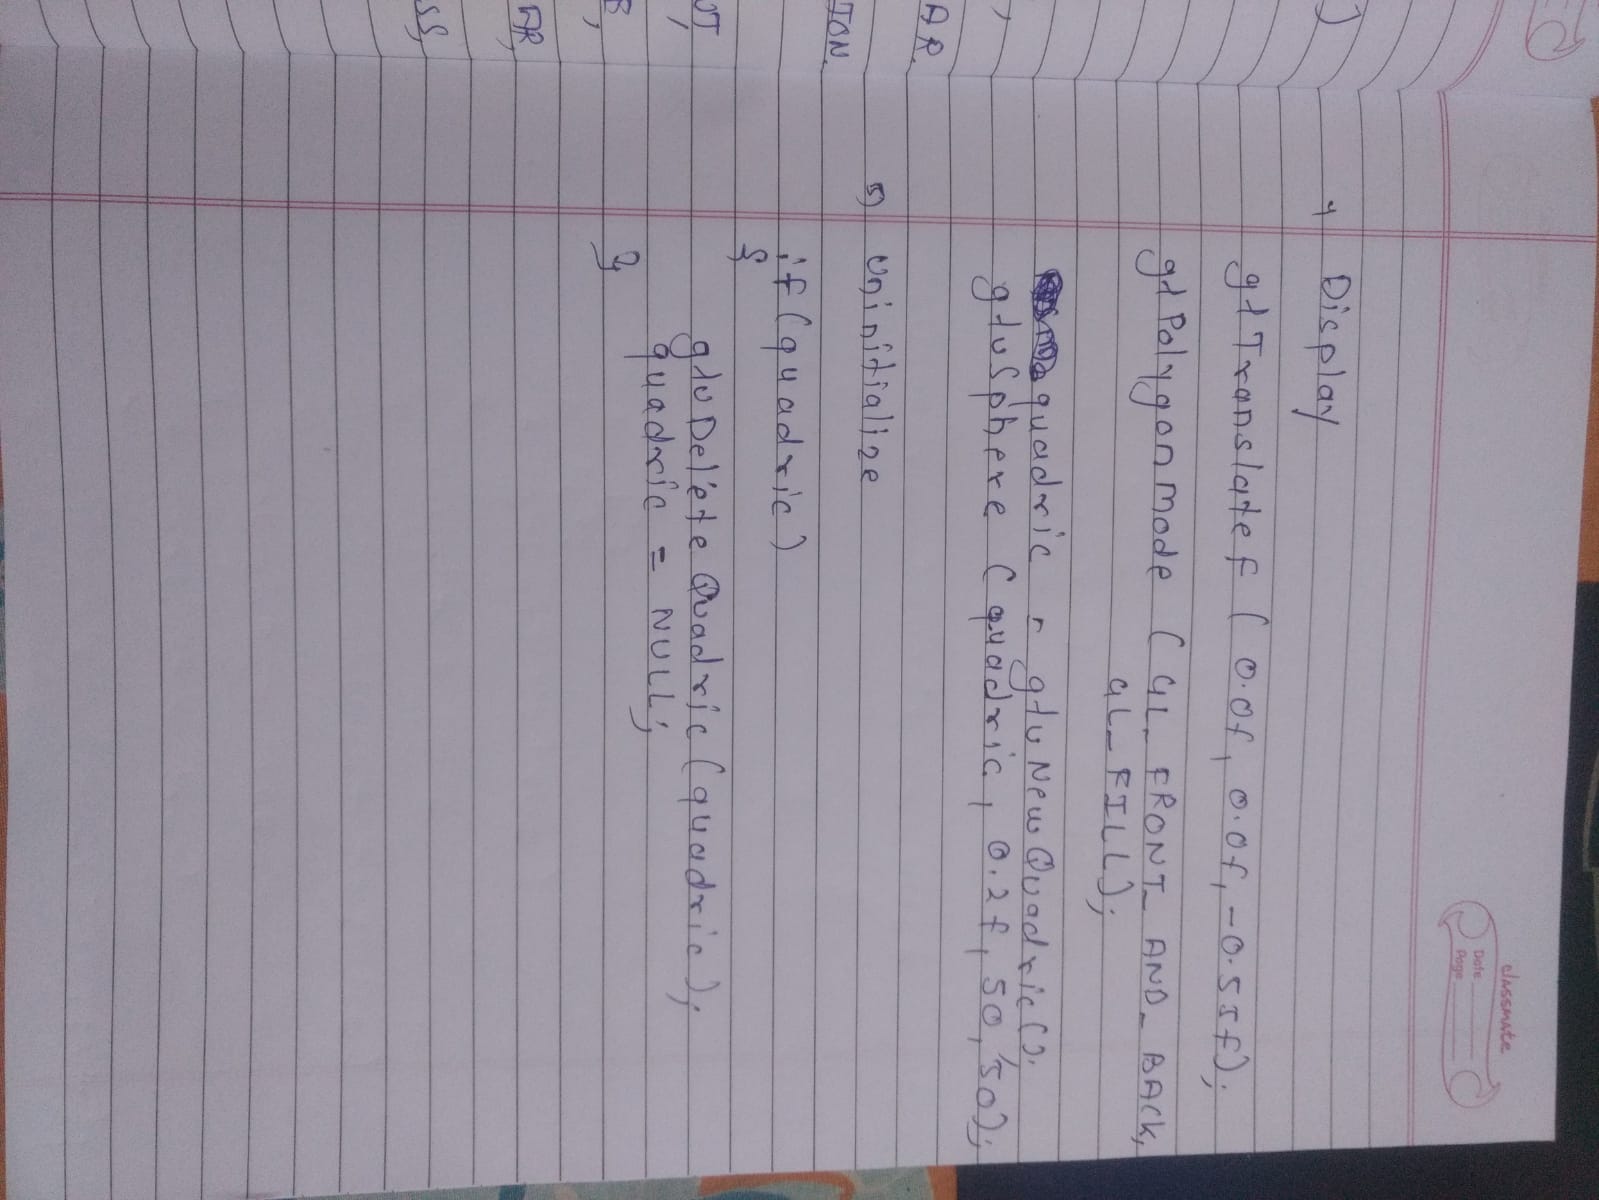 classmate
Date
Page
)
4) Display
glTranslatef ( 0.0f, 0.0f, -0.55f);
glPolygonmode ( GL_ FRONT_ AND_ BACK,
GL_ FILL);
quadric = gluNewQuadric();
gluSphere ( quadric, 0.2f, 50, 50);
,
AR.
5) Uninitialize
ION.
if (quadric)
{
UT,
gluDelete Quadric (quadric);
quadric = NULL;
B,
}
AR,
SS,